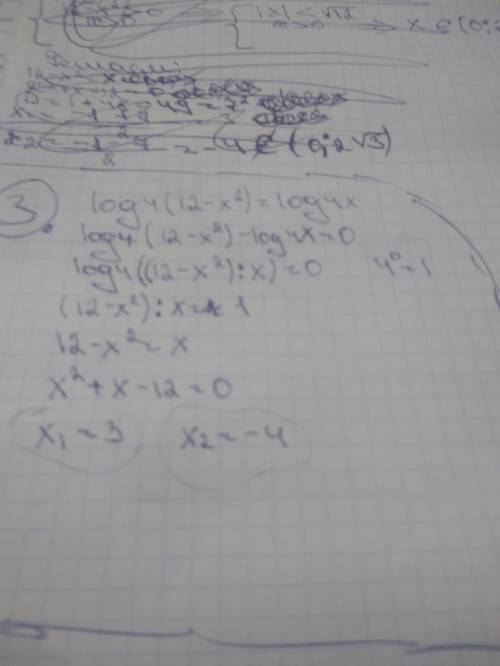 |x| < √12
x > 0 x ∈ (0;
= 49 = 7²
x₂ = -1-7 / 2 = -4 ∉ (0; 2√3)
3. log4(12-x²) = log4x
log4(12-x²) - log4x = 0
log4((12-x²):x) = 0 4⁰ = 1
(12-x²):x = 1
12-x² = x
x²+x-12=0
x₁ = 3 x₂ = -4